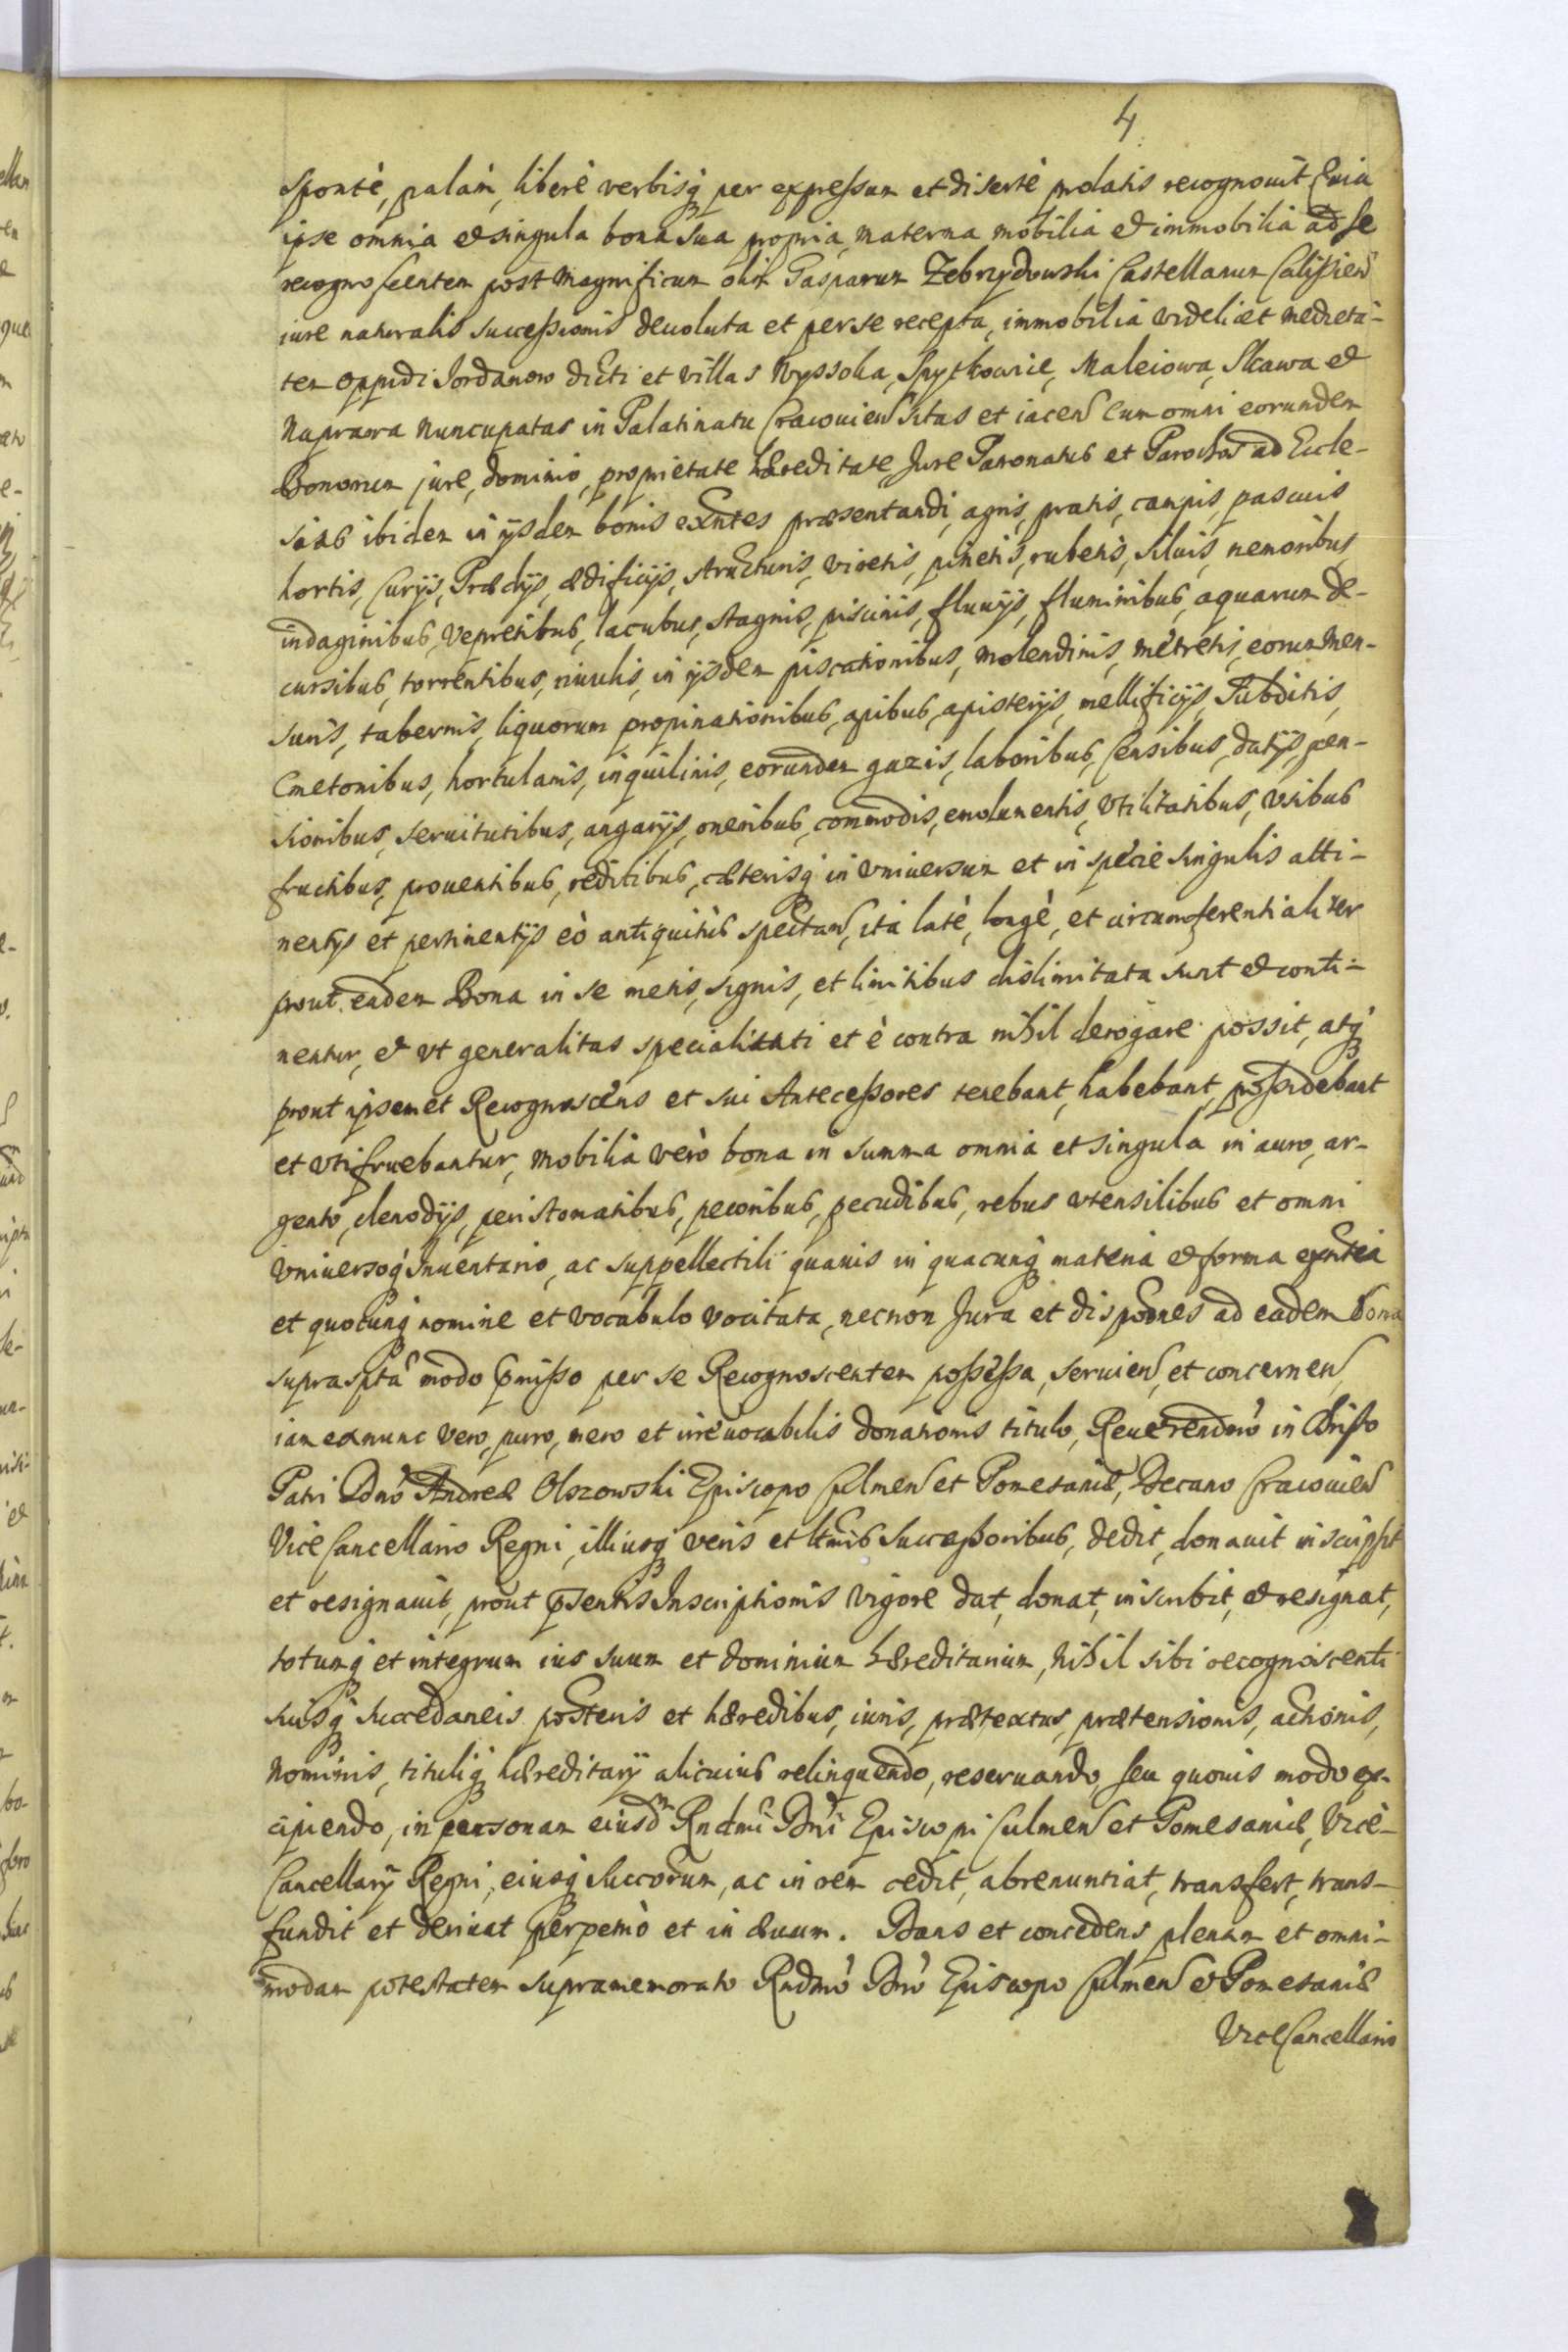 4
spontè, palàm, liberè verbisq́ per expressum et disertè prolatis recognouit Quia
ipse omnia et singula bona sua propria, materna mobilia et immobilia ad se
recognoscentem post Magnificum olim Gasparum Zebrzydowski Castellanum Calissien
iure naturalis successionis deuoluta et per se recepta, immobilia videlicet medieta-
tem oppidi Jordanow dicti et villas Wyssoka, Spytkowice, Maleiowa, Skawa et
Naprawa nuncupatas in Palatinatu Cracouien sitas et iacen cum omni eorundem
Bonorum jure, dominio, proprietate hæreditate, Jure Patronatus et Parochos ad Eccle-
sias ibidem in ijsdem bonis exntes præsentandi, agris, pratis, campis, pascuis
hortis, Curijs, Prædijs, ædificijs, structuris, viretis, pinetis, rubetis, siluis, nemoribus,
indaginibus, Vepretibus, lacubus, stagnis, piscinis, fluuijs, fluminibus, aquarum de-
cursibus, torrentibus, riuulis, in ijsdem piscationibus, molendinis, metretis, eorum Men-
suris, tabernis, liquorum propinationibus, apibus, apisterijs, mellificijs, Subditis,
Cmetonibus, hortulanis, inquilinis, eorundem gazis, laboribus, Censibus, datijs, pen-
sionibus, seruitutibus, angarijs, oneribus, commodis, emolumentis, vtilitatibus, vsibus
fructibus, prouentibus, reditibus, cæterisq́ in vniuersum et in specie singulis atti-
nentijs et pertinentijs eò antiquitùs spectan, ita latè, longè, et circumferentialiter
prout eadem Bona in se metis, signis, et limitibus dislimitata sunt et conti-
nentur, et vt generalitas specialitati et è contra nihil derogare possit, atq́
prout ipsemet Recognoscens et sui Antecessores tenebant, habebant, possidebant
et vtifruebantur, Mobilia verò bona in summa omnia et singula in auro, ar-
gento, clenodijs, peristomatibus, pecoribus, pecudibus, rebus vtensilibus et omni
vniuersoq́ Inuentario, ac suppellectili quauis in quacunq́ materia et forma exntia
et quocunq́ nomine et vocabulo vocitata, necnon Jura et dispones ad eadem Bona
supraspta modo pmisso per se Recognoscentem possessa, seruien, et concernen,
iam ex nunc vero, puro, mero et irreuocabilis donationis titulo, Reuerendmo in Christo
Patri Dno Andreæ Olszowski Episcopo Culmen et Pomesaniæ, Decano Cracouien
ViceCancellario Regni, illiusq́ veris et ltmis Successoribus, dedit, donauit inscripsit
et resignauit, prout psentis Inscriptionis vigore dat, donat, inscribit, et resignat,
totumq́ et integrum ius suum et dominium hæreditarium, nihil sibi recognoscenti
suisq́ succedaneis posteris et hæredibus, iuris, prætextus, prætensionis, actionis,
Nominis, tituliq́ hæreditarij alicuius relinquendo, reseruando, seu quouis modo ex-
cipiendo, in personam eiusdm Rndmi Dni Episcopi Culmen et Pomesaniæ, Vice-
Cancellarij Regni, eiusq́ succorum, ac in rem cedit, abrenuntiat, transfert, trans-
fundit et deriuat perpetuò et in æuum. Dans et concedens plenam et omni-
modam potestatem supramemorato Rndmo Dno Episcopo Culmen et Pomesaniæ
ViceCancellario